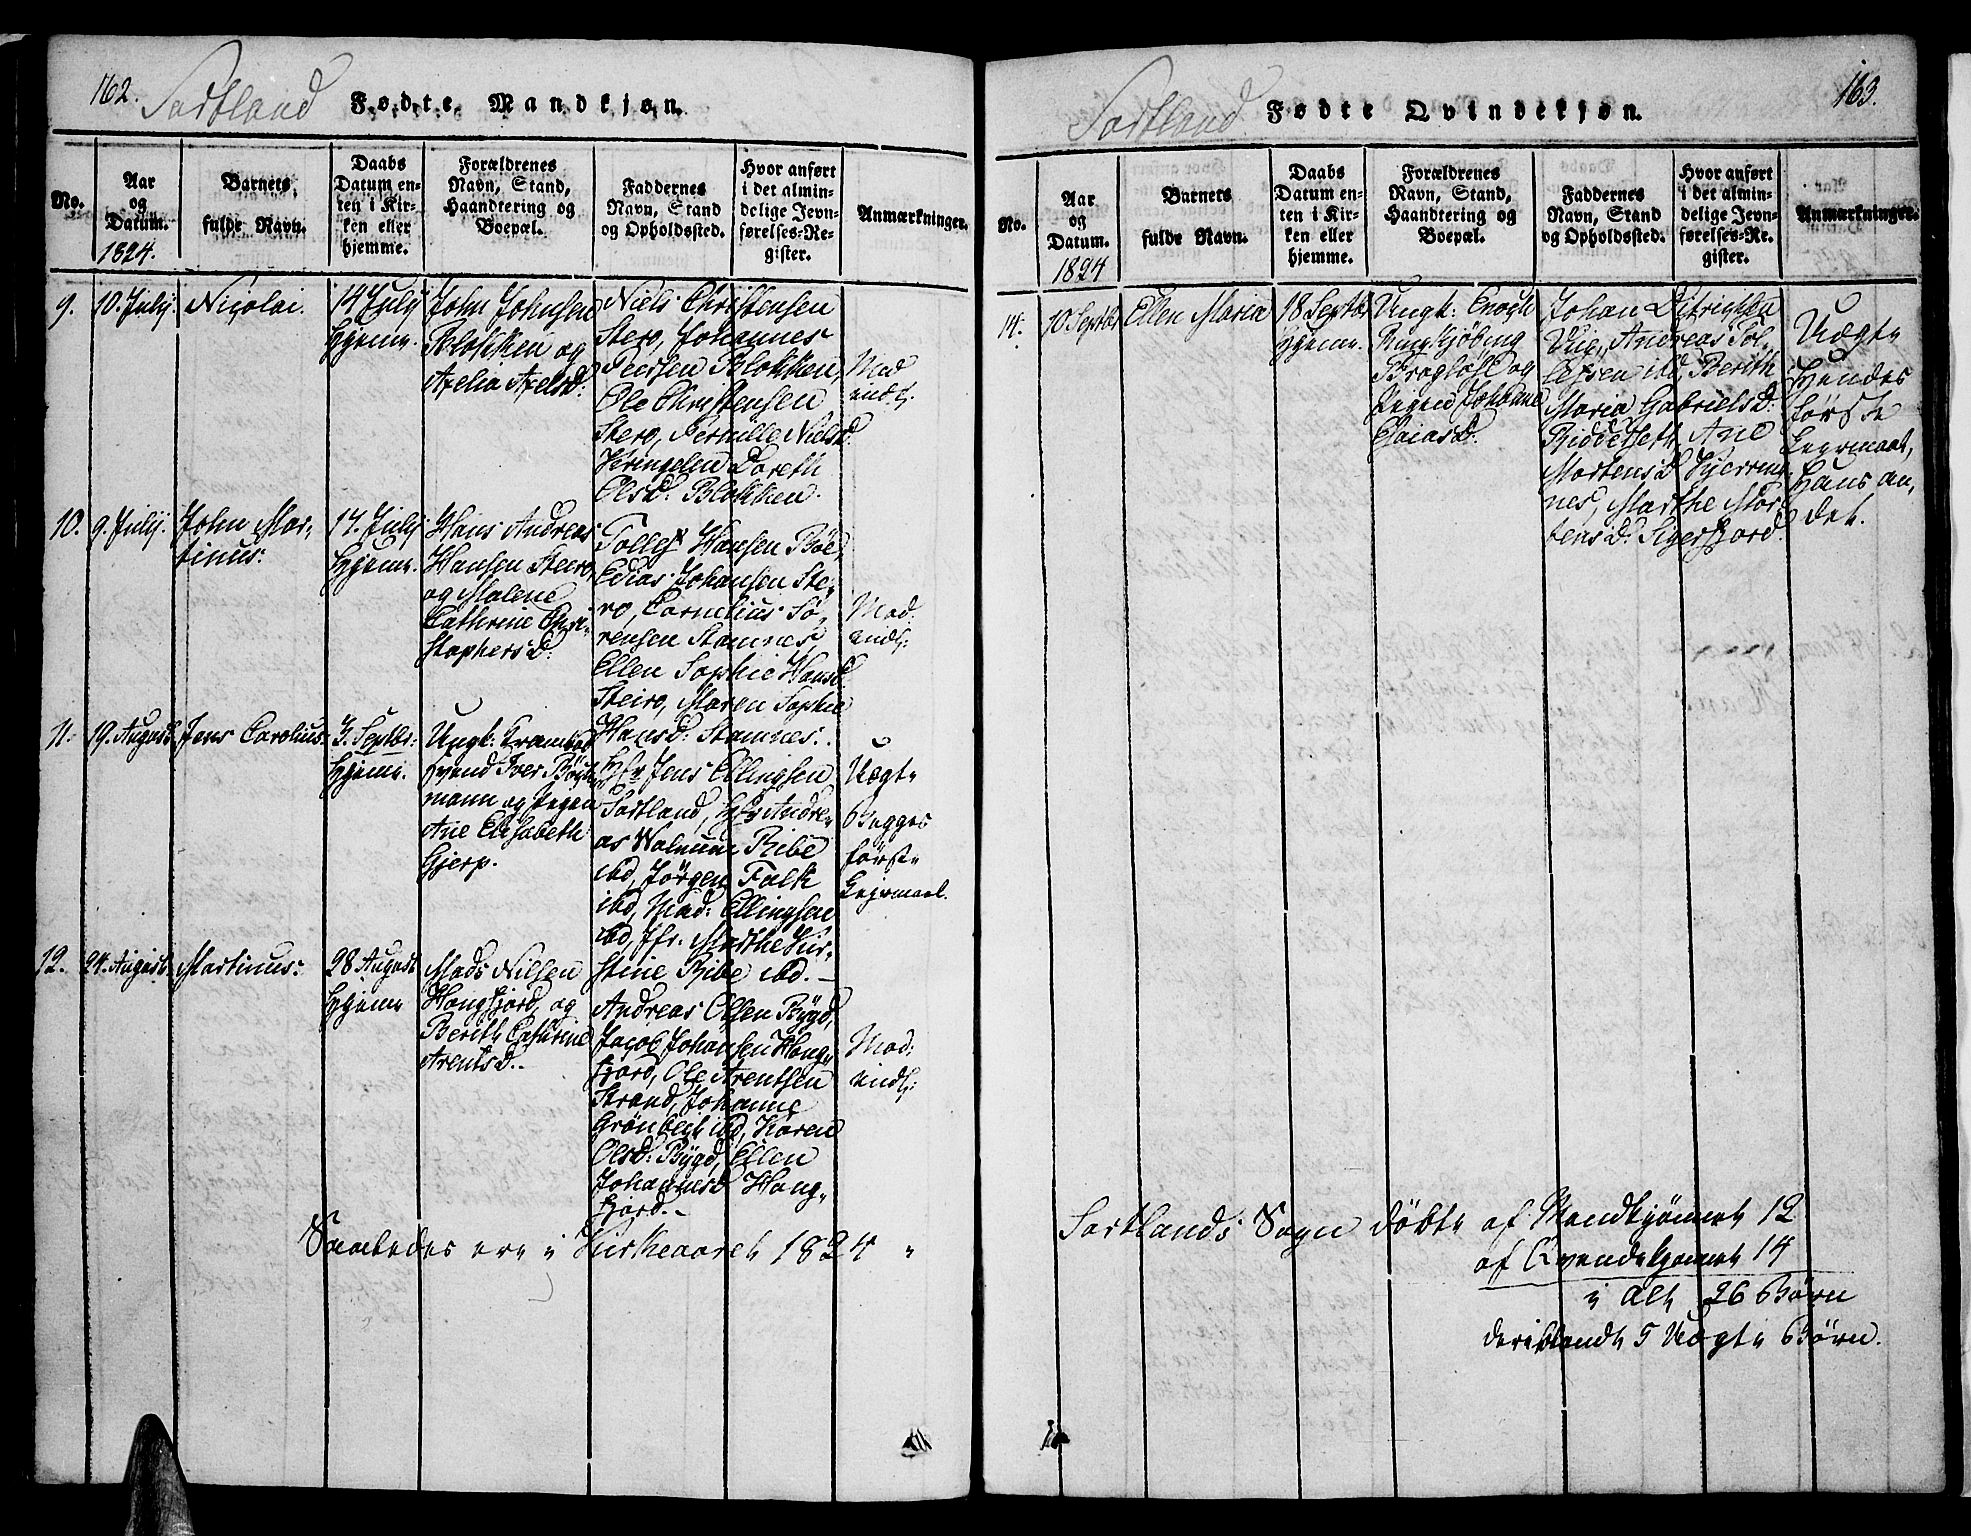 162.
Sortland
Fødte Mandkjøn.
No.
Aar
og
Datum.
1824.
Barnets
fulde Navn.
Daabs
Datum en-
ten i Kir-
ken eller
hjemme.
Forældrenes
Navn, Stand,
Haandtering og
Boepæl.
Faddernes
Navn, Stand
og Opholdssted.
Hvor anført
i det almin-
delige Jevn-
førelses-Re-
gister.
Anmærkninger.
9.
10. Julij
Nicolai.
14 Julij
Hjeme.
John Johnsen
Blokken og
Axelia Axelsd:
Niels Christensen
Stero, Johannes
Peersen Blokken,
Ole Christensen
Stero, Pernille Nielsd:
Kringelen Doreth
Olsd: Blokken.
10.
9. Julij.
John Mar-
tinus:
17. Julij
Hjeme.
Hans Andreas
Hansen Steiro,
og Malene
Cathrine Chri-
stophersd:
Tollef Hansen Böe,
Edias Johansen Ste-
ro, Cornelius Sö-
rensen Stamnes
Ellen Sophie Hansd:
Steiro, Maren Sophie
Hansd: Stamnes.
11.
19. August
Jens Carolius:
3. Septbr:
Hjeme.
Ungk:
svend Iver
mann og Pigen
Ane Elisabeth
Gjerp.
Hr Jens Ellingsen
Sortland, Hr Andre-
as Ribe
ibd, Jörgen Falk
ibd, Mad: Ellingsen
ibd, Jfr. Marthe Kir-
stine Ribe ibd.-
Uægte
Begges
förste
Lejermaal.
12.
24. August
Martinus:
28 August
Hjeme
Mads Nilsen
Hongfjord, og
Berith Cathrine
Arentsd.
Andreas Olsen Bÿgd,
Jacob Johansen Hong-
fjord, Ole Arentsen
Strand, Johanne
Grönbech ibd, Karen
Olsd: Bÿgd, Ellen
Johannesd Hong-
fjord.-
Saaledes ere i Kirkeaaret 1824
163.
Sortland
Fødte Qvindekjøn.
No.
Aar
og
Datum.
1824
Barnets
fulde Navn.
Daabs
Datum en-
ten i Kir-
ken eller
hjemme.
Forældrenes
Navn, Stand,
Haandtering og
Boepæl.
Faddernes
Navn, Stand
og Opholdssted.
Hvor anført
i det almin-
delige Jevn-
førelses-Re-
gister.
Anmærkninger.
14.
10 Septbr
Ellen Maria
18 Septbr
Hjeme.
Ungk: Enogh
Ringkjöbing
og
Pigen Johanne
Esaiasd.
Johan Ditrichsen
Vig, Andreas Tol-
lefsen ibd, Berith
Maria Gabrielsd:
Ane
Mortensd
nes, Marthe Mor-
tensd: Sigerfjord.
Uægte
Hendes
förste
Lejermaal,
Hans an-
det.
Sortlands Sogn döbte af Mandkjönnet 12
af Qvindekjönnet 14
i Alt 26 Börn
deriblandt 5 Uægte Börn.